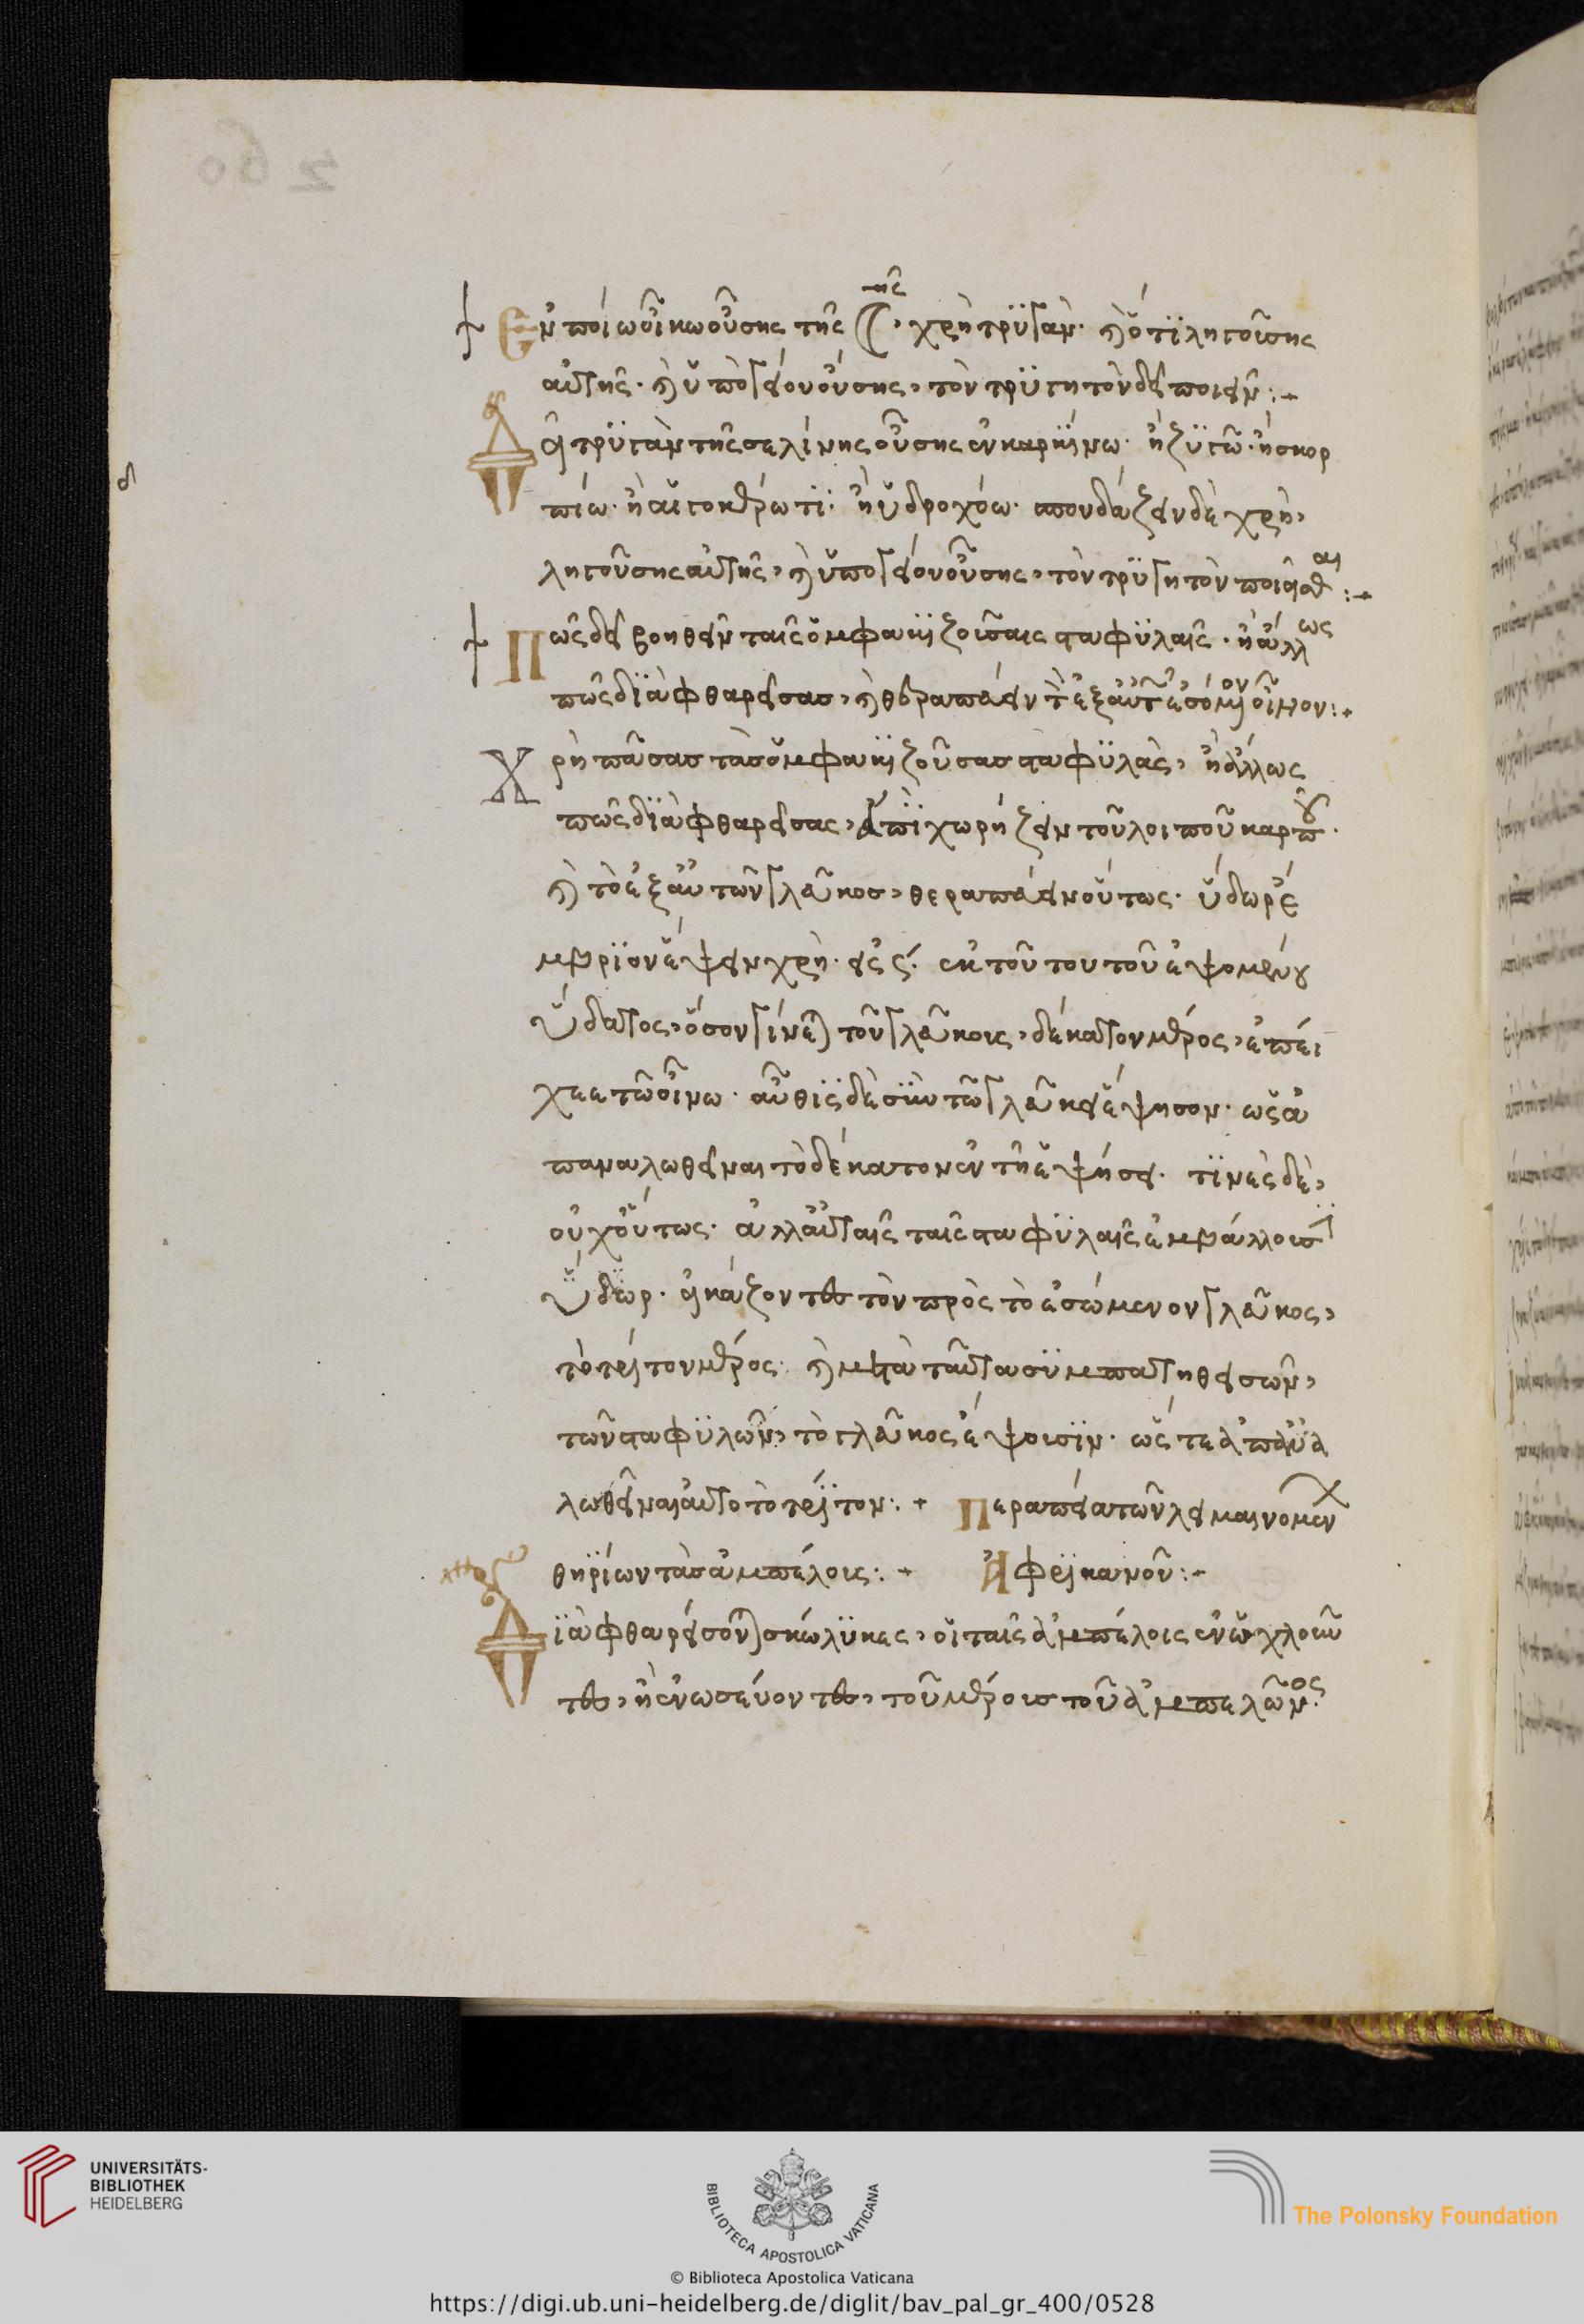 260
Ἐν ποίω οἴκω οὔσης τῆς ☾ης, χρὴ τρϋγᾶν· καὶ ὅτϊ ληγούσης
αὐτῆς· καὶ ὑπὸ γείον οὔσης, τὸν τρϋγητὸν δεῖ ποιεῖν :+
δ
Δεῖ τρϋγᾶν τῆς σελίνης οὔσης ἐν καρκίνω· ἢ ζϋγῶ· ἢ σκορ
πίω· ἢ αἰγοκέρωτϊ· ἢ ὑδροχόω· σπουδάζειν δὲ χρὴ,
ληγούσης αὐτῆς, καὶ ὑπογείου οὔσης, τὸν τρϋγητὸν ποιεῖσθαι :+
Πῶς δεῖ βοηθεῖν ταῖς ὀμφακιζούσαις σταφϋλαῖς· ἢ ἄλλως
πῶς δϊὰφθαρείσας, καὶ θεραπεύειν τὸ ἐξ αὐτῶν ἐσόμενον οἶνον :+
Χρὴ πάσας τὰς ὀμφακιζούσας σταφϋλὰς, ἢ ἄλλως
πῶς δϊὰφθαρείσας, ἀπϊχωρήζειν τοῦ λοιποῦ καρποῦ·
καὶ τὸ ἐξ αὐτῶν γλεῦκος, θεραπεύειν οὕτως· ὕδωρ ἐ
μβρϊον ἕψειν χρὴ· εἰς· ἐκ τούτου τοῦ ἑψομένου
ὕδατος, ὅσον γίνεται τοῦ γλεύκους, δέκατον μέρος, ἐπέι
χεε τῶ οἴνω· αὖθις δὲ σὺν τῶ γλεύκει ἕψησον· ὡς ἀ
παναλωθεῖναι τὸ δέκατον ἐν τῆ ἑψήσει· τϊνὲς δὲ,
οὐχ οὕτως· ἀλλ' αὐταῖς ταῖς σταφϋλαῖς ἐμβάλλουσϊ
ὕδωρ· εἰκάζοντες τὸν πρὸς τὸ ἐσώμενον γλεῦκος,
τὸ τρίτον μέρος· καὶ μετὰ ταῦτα σϋμπατηθεισῶν,
τῶν σταφϋλῶν, τὸ γλεῦκος ἕψουσϊν· ὥς τε ἀπανα
λωθεῖναι αὐτο τὸ τρίτον :+ Περαπεία τῶν λειμαινομένων
θηρϊίων τὰς ἀμπέλοις :+ Ἀφρικανοῦ :+
Δϊὰφθαρείσονται σκώλϋκες, οἱ ταῖς ἀμπέλοις ἐνωχλοῦν
τες, ἢ ἐνωσεύοντες, τοῦ μέρους τοῦ ἀμπελῶνος·
UNIVERSITÄTS-
BIBLIOTHEK
HEIDELBERG
BIBLIOTECA APOSTOLICA VATICANA
The Polonsky Foundation
© Biblioteca Apostolica Vaticana
https://digi.ub.uni-heidelberg.de/diglit/bav_pal_gr_400/0528